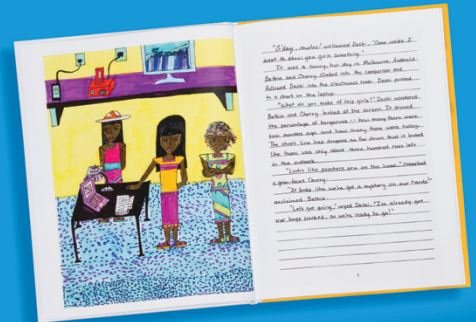 "G'day, mates! welcomed Deshi. "Come inside I
want to show you girls something."
It was a sunny, hot day in Melbourne, Australia.
Bettina and Cherry climbed into the campervan and
followed Deshi into the electronics room. Deshi pointed
to a chart on the laptop.
"What do you make of this girls?" Deshi wondered.
Bettina and Cherry looked at the screen. It showed
the percentage of kangaroos -- how many there were
two months ago and how many there were today.
The chart line had dropped so far down that it looked
like there was only about three hundred roos left
in the outback.
"Looks like poachers are on the loose" remarked
a grim-faced Cherry.
"It looks like we've got a mystery on our hands!"
exclaimed Bettina.
"Let's get going," urged Deshi. "I've already got
our bags packed, so we're ready to go!"